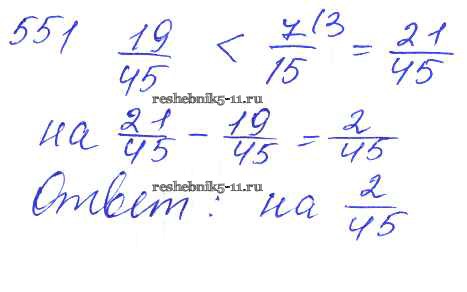 551 19/45 < 7/15 (3 = 21/45
reshebnik5-11.ru
на 21/45 - 19/45 = 2/45
reshebnik5-11.ru
Ответ: на 2/45